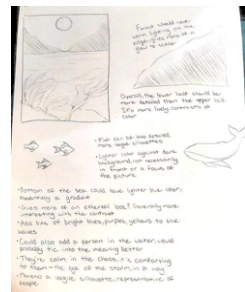 Forest should have
some lighting on the
edge, gives more of a
Overall, the lower half should be
more detailed than the upper half
It's more lively, contrasts of
color
• Fish can be less detailed
more vague silhouettes
• Lighter color against dark
background, not necessarily
in front or a focus of
the picture
• Bottom of the sea could have lighter blue color,
essentially a gradient
• Gives more of an ethereal look? Generally more
interesting with the contrast
• Add bits of bright blues, purples, yellows to the
waves
• Could also add a person in the water, would
probably tie into the meaning better
• They're calm in the chaos, it's comforting
to them = the eye of the storm, in a way
a vague silhouette, representative of
people